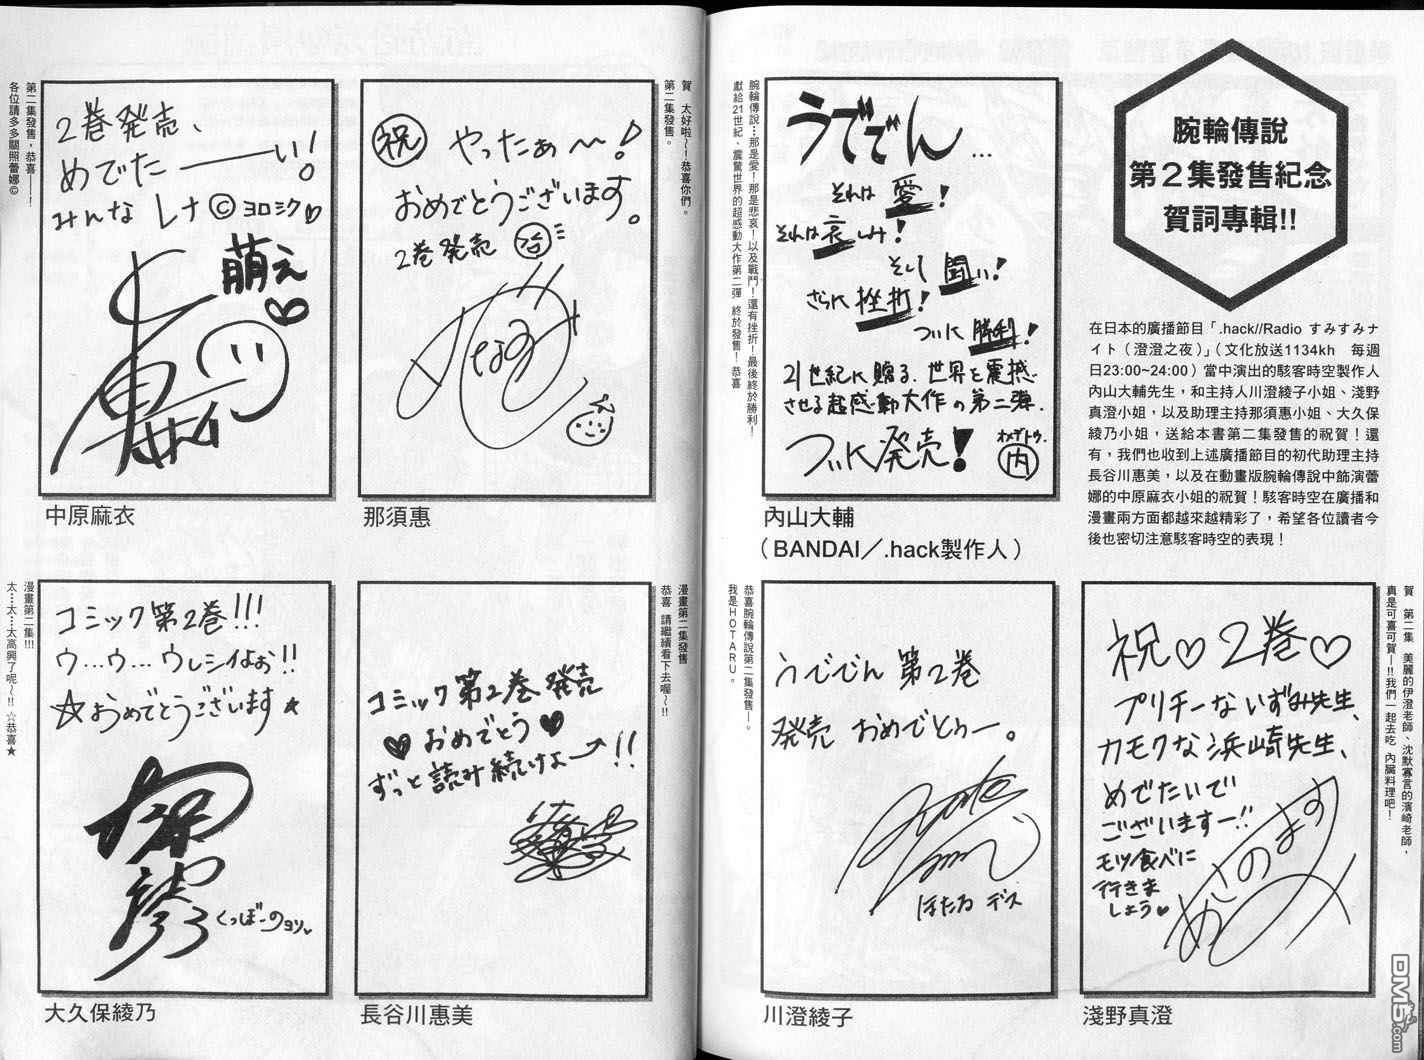 腕輪傳說
第2集發售紀念
賀詞專輯!!
在日本的廣播節目「.hack//Radio すみすみナ
イト（澄澄之夜）」（文化放送1134kh　每週
日23:00~24:00）當中演出的駭客時空製作人
內山大輔先生，和主持人川澄綾子小姐、淺野
真澄小姐，以及助理主持那須惠小姐、大久保
綾乃小姐，送給本書第二集發售的祝賀！還
有，我們也收到上述廣播節目的初代助理主持
長谷川惠美，以及在動畫版腕輪傳說中飾演蕾
娜的中原麻衣小姐的祝賀！駭客時空在廣播和
漫畫兩方面都越來越精彩了，希望各位讀者今
後也密切注意駭客時空的表現！
うででん…
それは愛！
それは哀しみ！
そして闘い！
さらに挫折！
ついに勝利！
21世紀に贈る、世界を震撼
させる超感動大作の第二弾、
ついに発売！
オメデトウ。
内
腕輪傳說…那是愛！那是悲哀！以及戰鬥！還有挫折！最後終於勝利！
獻給21世紀、震驚世界的超感動大作第二彈 終於發售！恭喜
內山大輔
（BANDAI／.hack製作人）
賀　太好啦～！恭喜你們。
第二集發售。
祝 やったぁ〜！
おめでとうございます。
2巻発売
なすめ
那須惠
第二集發售，恭喜——！
各位請多多關照蕾娜©
2巻発売、
めでたーーい！
みんな レナ© ヨロシク♡
萌え♥
中原麻衣
賀　第二集　美麗的伊澄老師、沈默寡言的濱崎老師，
真是可喜可賀—!!我們一起去吃 內臟料理吧！
祝♡2巻♡
プリチーないずみ先生、
カモクな浜崎先生、
めでたいで
ございますー!!
モツ食べに
行きま
しょう♥
あさのますみ
淺野真澄
恭喜腕輪傳說第二集發售—。
我是HOTARU。
うででん 第2巻
発売 おめでとぅー。
ほたる デス
川澄綾子
漫畫第二集發售
恭喜 請繼續看下去喔～!!
コミック第2巻発売
♥おめでとう♥
ずっと読み続けよ→!!
長谷川惠美
漫畫第二集!!!
太…太…太高興了呢～!! ☆恭喜★
コミック第2巻!!!
ウ…ウ…ウレシイよぉ!!
☆おめでとうございます★
くっぼーのヨソ
大久保綾乃
DM5.com